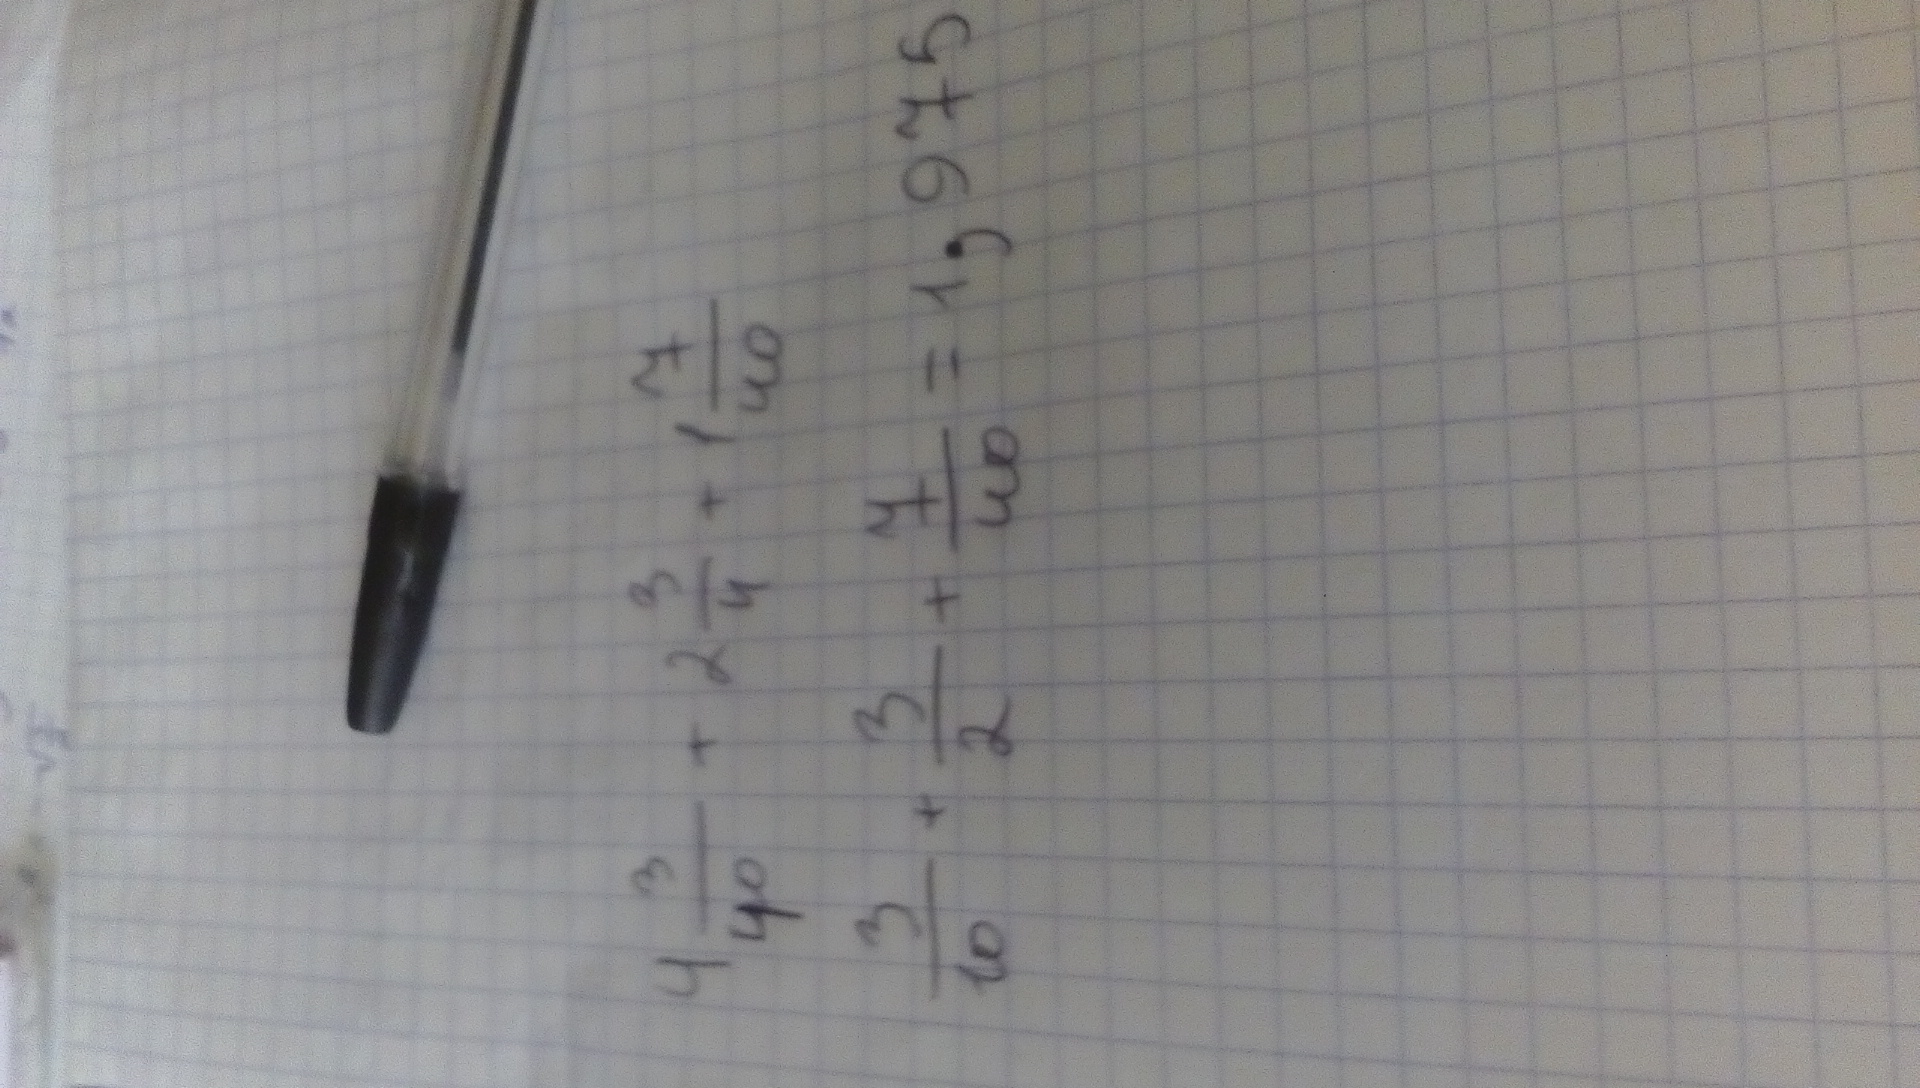 4 3/40 + 2 3/4 + 1 7/40
3/10 + 3/2 + 7/40 = 1,975